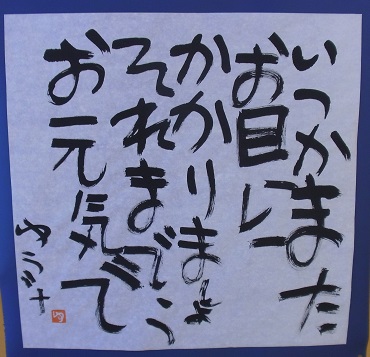 いつかまた
お目に
かかりましょう
それまで
お元気で